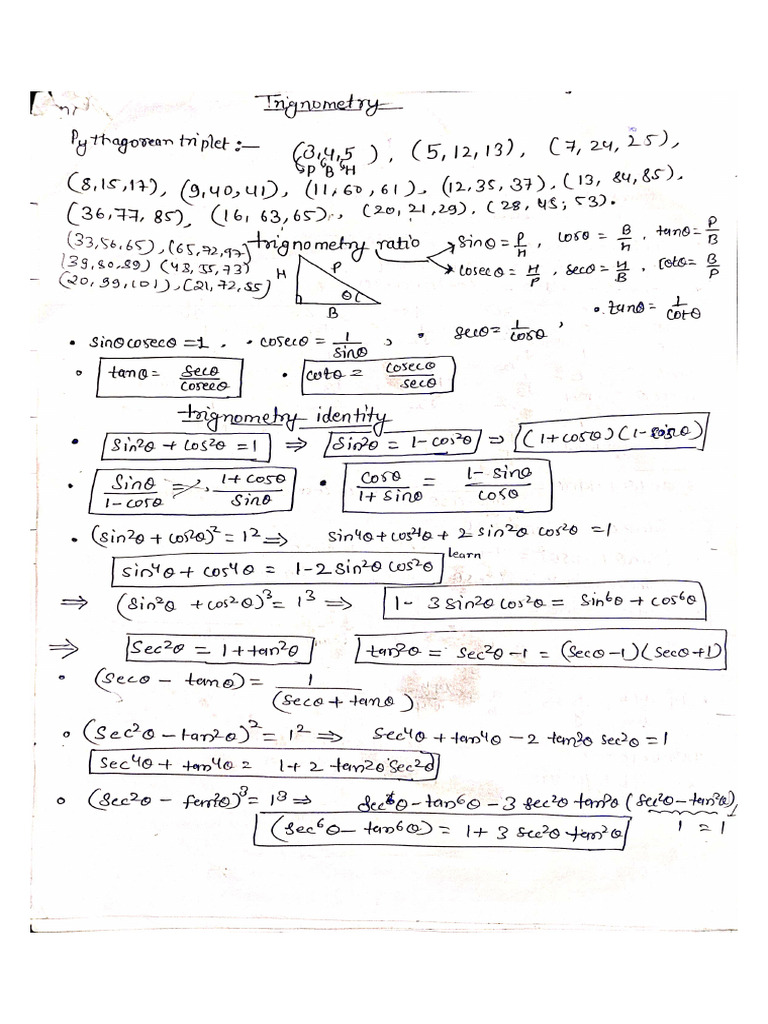 Trignometry
Pythagorean triplet :— (3,4,5), (5,12,13), (7,24,25),
P B H
(8,15,17), (9,40,41), (11,60,61), (12,35,37), (13, 84,85),
(36,77,85), (16,63,65), (20,21,29), (28,45,53).
(33,56,65), (65,72,97) trignometry ratio → sinθ = P/H, cosθ = B/H, tanθ = P/B
(39,80,89) (48,55,73) → cosecθ = H/P, secθ = H/B, cotθ = B/P
(20,99,101), (21,72,75)
H P θ B
• sinθ cosecθ = 1, • cosecθ = 1/sinθ, • secθ = 1/cosθ, • tanθ = 1/cotθ
• tanθ = secθ/cosecθ • cotθ = cosecθ/secθ
trignometry identity
• sin²θ + cos²θ = 1 ⇒ sin²θ = 1 - cos²θ ⇒ (1+cosθ)(1-cosθ)
• sinθ/(1-cosθ) = (1+cosθ)/sinθ • cosθ/(1+sinθ) = (1-sinθ)/cosθ
• (sin²θ + cos²θ)² = 1² ⇒ sin⁴θ + cos⁴θ + 2 sin²θ cos²θ = 1
sin⁴θ + cos⁴θ = 1-2 sin²θ cos²θ learn
⇒ (sin²θ + cos²θ)³ = 1³ ⇒ 1 - 3 sin²θ cos²θ = sin⁶θ + cos⁶θ
⇒ sec²θ = 1 + tan²θ tan²θ = sec²θ - 1 = (secθ-1)(secθ+1)
• (secθ - tanθ) = 1/(secθ + tanθ)
• (sec²θ - tan²θ)² = 1² ⇒ sec⁴θ + tan⁴θ - 2 tan²θ sec²θ = 1
sec⁴θ + tan⁴θ = 1+2 tan²θ sec²θ
• (sec²θ - tan²θ)³ = 1³ ⇒ sec⁶θ - tan⁶θ - 3 sec²θ tan²θ (sec²θ - tan²θ)
(sec⁶θ - tan⁶θ) = 1 + 3 sec²θ tan²θ 1 = 1